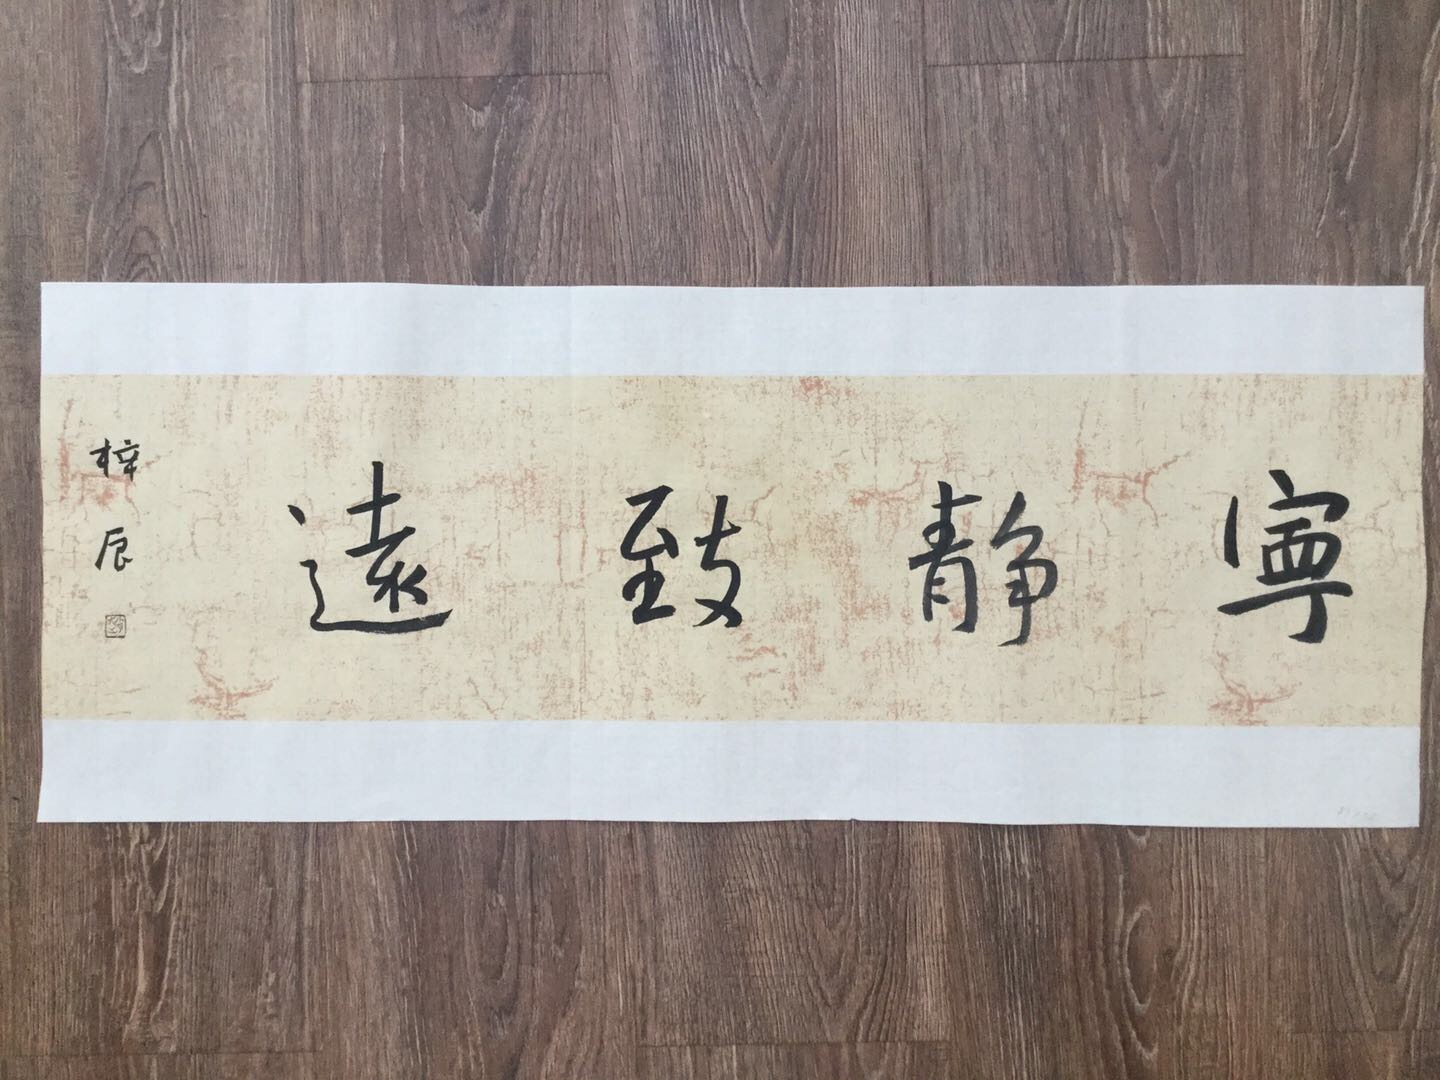 寧靜致遠
梓辰